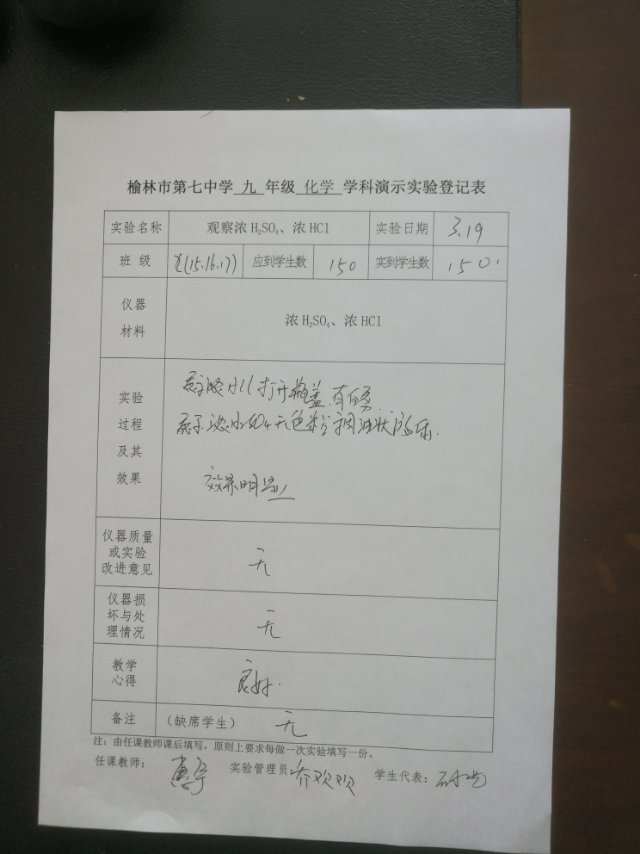 榆林市第七中学 九 年级 化学 学科演示实验登记表
实验名称 观察浓H₂SO₄、浓HCl 实验日期 3.19
班 级 (15.16.17) 应到学生数 150 实到学生数 150
仪器材料 浓H₂SO₄、浓HCl
实验过程及其效果 打开瓶盖
无色粘稠油状液体.
效果明显
仪器质量或实验改进意见 无
仪器损坏与处理情况 无
教学心得 良好.
备注 (缺席学生) 无
注：由任课教师课后填写，原则上要求每做一次实验填写一份。
任课教师： 实验管理员: 乔欢欢 学生代表：